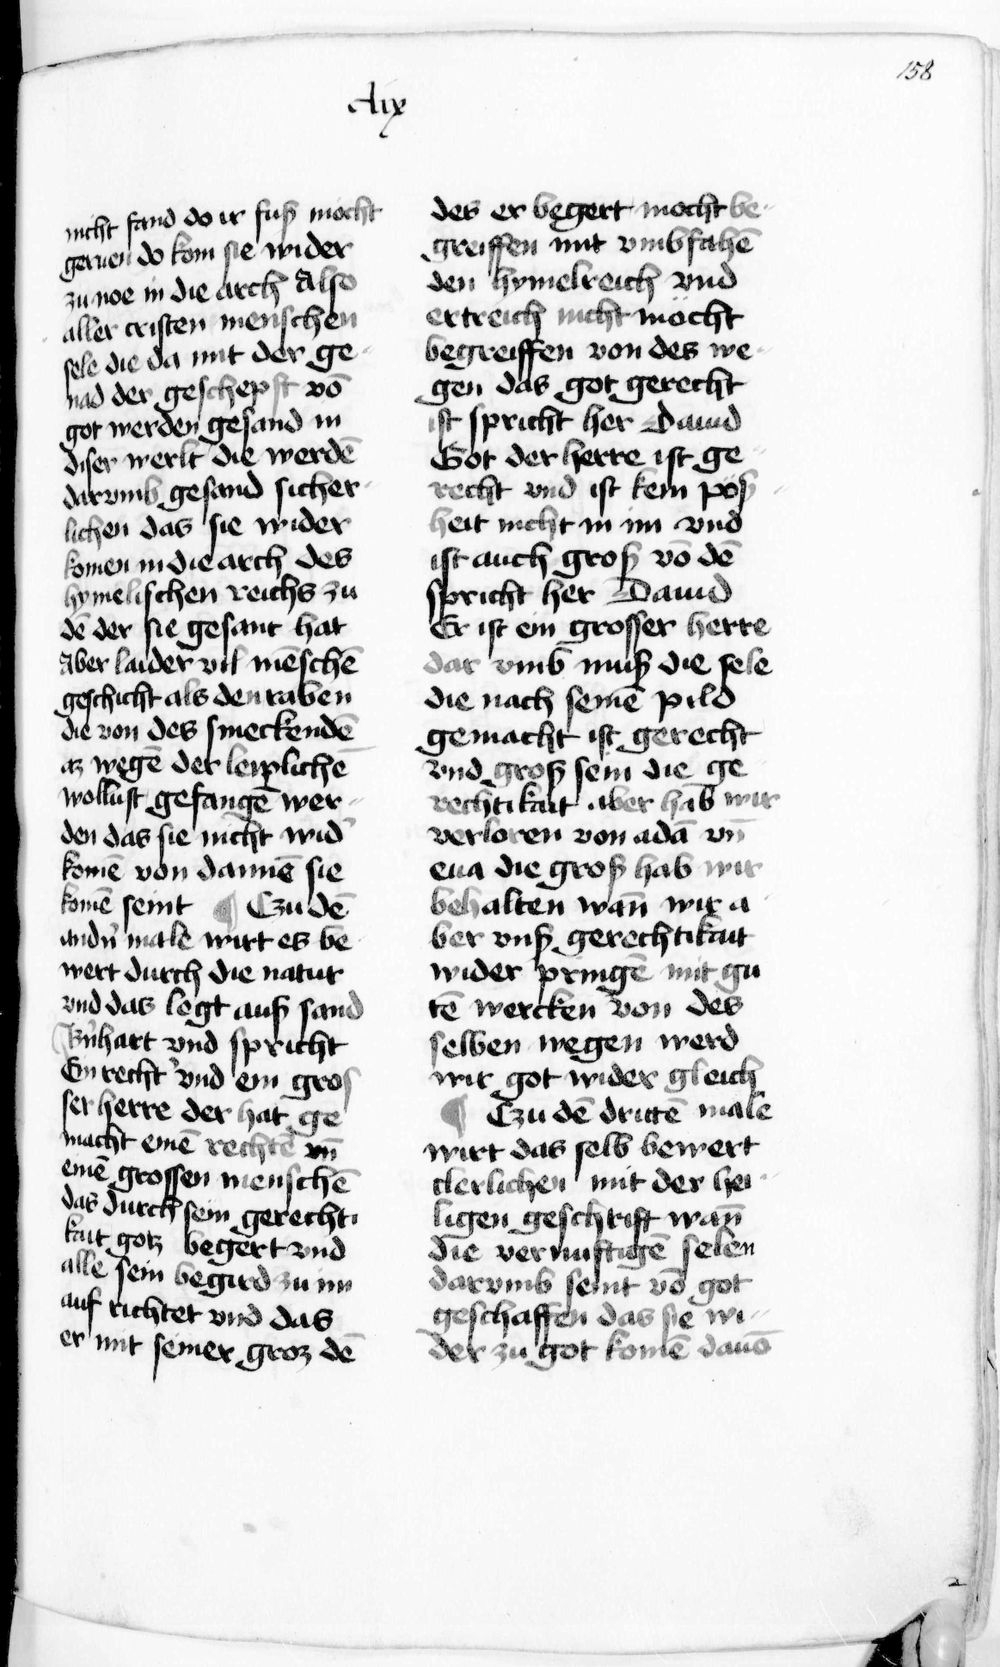 158
Aix
nicht fand do ir fuß mocht
geruen do kom sie wider
zu noe in die arch Also
aller cristen menschen
sele die da mit der ge-
nad der geschepft vō
got werden gesand in
diser werlt die werdē
darvmb gesand sicher-
lichen das sie wider
komen in die arch des
hymelischen reichs zu
dē der sie gesant hat
Aber laider vil mēschē
geschicht als den raben
die von des smeckendē
az wegē der leiplichē
wollust gefangē wer-
den das sie nicht wid'
komē von dannē sie
komē seint ¶ Czu dē
andn̄ male wirt es be-
wert durch die natur
vnd das legt auß sand
Bn̄hart vnd spricht
Ein recht' vnd ein gros
ser herre der hat ge
macht einē rechtē vn̄
einē grossen menschē
das durch sein gerechti
kait gotz begert vnd
alle sein begird zu im
auf richtet vnd das
er mit seiner groz dē
des er begert mocht be-
greiffen mit vmbfahē
den hymelreich vnd
ertreich nicht möcht
begreiffen von des we-
gen das got gerecht
ist spricht her Dauid
Got der herre ist ge-
recht vnd ist kein pöß-
heit nicht in im vnd
ist auch groß vō dē
spricht her Dauid
Er ist ein grosser herre
dar vmb muß die sele
die nach seinē pild
gemacht ist gerecht
vnd groß sein die ge
rechtikait aber hab wir
verloren von adā vn̄
eua die groß hab wir
behalten wan̄ wir a
ber vnß gerechtikait
wider pringē mit gu
tē wercken von des
selben wegen werd
wir got wider gleich
¶ Czu dē drittē male
wirt das selb bewert
clerlichen mit der hei-
ligen geschrift wan̄
die vernuftigē selen
darvmb seint vō got
geschaffen das sie wi-
der zu got komē dauō